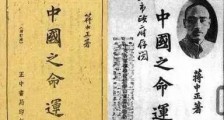 蔣中正著
中國之命運
正中書局印
市政府存閱
中國之命運
蔣中正著